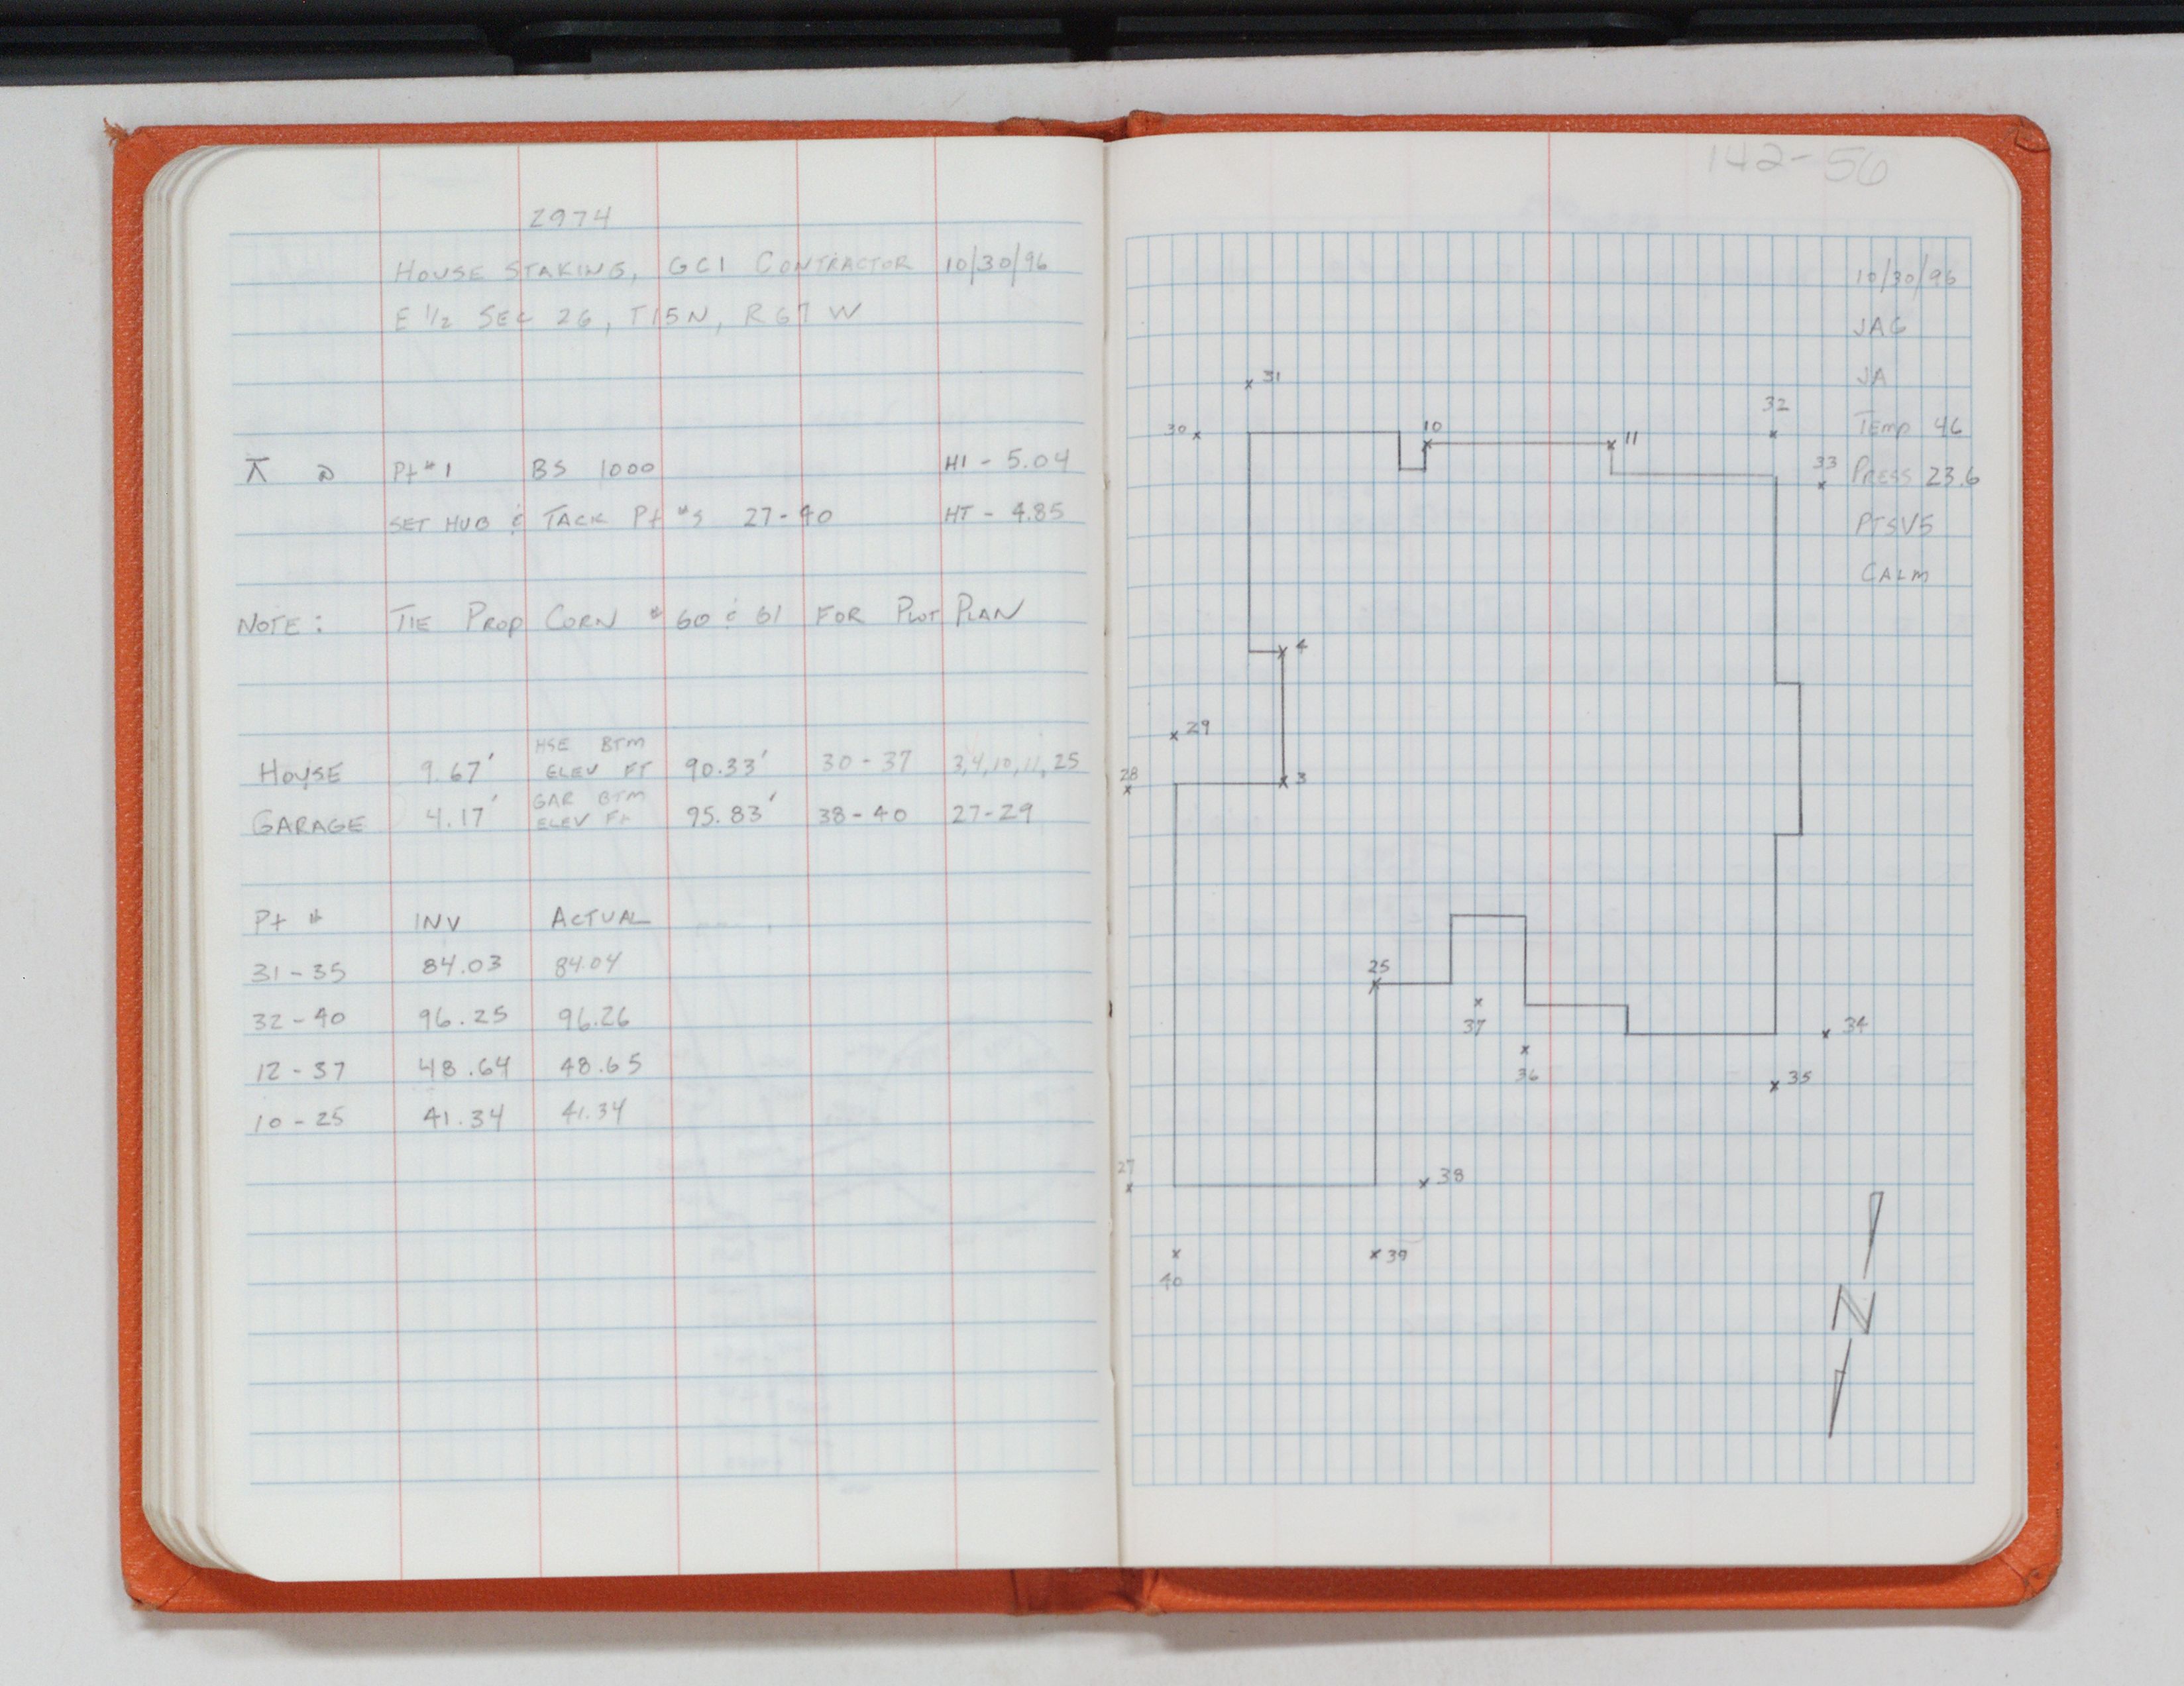 2974
HOUSE STAKING, GCI CONTRACTOR 10/30/96
E 1/2 SEC 26, T15N, R67W
Pt#1 BS 1000 HI - 5.04
SET HUB & TACK Pt #s 27-40 HT - 4.85
NOTE: TIE PROP CORN # 60 & 61 FOR PLOT PLAN
HOUSE 9.67' HSE BTM ELEV FT 90.33' 30-37 3,4,10,11,25
GARAGE 4.17' GAR BTM ELEV Ft 95.83' 38-40 27-29
Pt # INV ACTUAL
31-35 84.03 84.04
32-40 96.25 96.26
12-37 48.64 48.65
10-25 41.34 41.34
142-56
10/30/96
JAG
JA
TEMP 46
PRESS 23.6
PTSV5
CALM
31
32
30
10
11
33
4
29
28
3
25
37
34
36
35
27
38
39
40
N